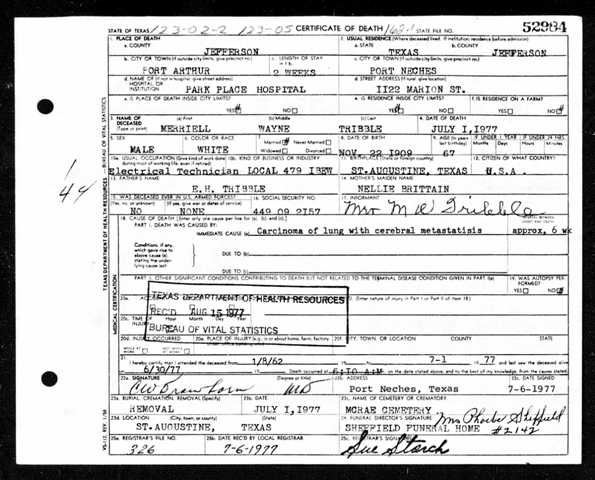 STATE OF TEXAS 123-02-2 123-05 CERTIFICATE OF DEATH STATE FILE NO. 52984
1. PLACE OF DEATH
2. USUAL RESIDENCE (Where deceased lived. If institution: residence before admission)
a. COUNTY JEFFERSON
a. STATE TEXAS
b. COUNTY JEFFERSON
b. CITY OR TOWN (If outside city limits, give precinct no.) PORT ARTHUR
c. LENGTH OF STAY 2 WEEKS
c. CITY OR TOWN (If outside city limits, give precinct no.) PORT NECHES
d. NAME OF (If not in hospital, give street address) HOSPITAL OR INSTITUTION PARK PLACE HOSPITAL
1122 MARION ST.
e. IS PLACE OF DEATH INSIDE CITY LIMITS? YES NO
e. IS RESIDENCE INSIDE CITY LIMITS? YES NO
f. IS RESIDENCE ON A FARM? YES NO
3. NAME OF DECEASED (Type or print) (a) First MERRIELL (b) Middle WAYNE (c) Last TRIBBLE
4. DATE OF DEATH JULY 1,1977
5. SEX MALE
6. COLOR OR RACE WHITE
7. Married Never Married Widowed Divorced
8. DATE OF BIRTH NOV. 22 1909
9. AGE (In years last birthday) 67
IF UNDER 1 YEAR Months Days
IF UNDER 24 HRS. Hours Min.
10a. USUAL OCCUPATION (Give kind of work done during most of working life, even if retired) Electrical Technician
KIND OF BUSINESS OR INDUSTRY LOCAL 479 IBEW
11. BIRTHPLACE (State or foreign country) ST.AUGUSTINE, TEXAS
12. CITIZEN OF WHAT COUNTRY? U.S.A.
13. FATHER'S NAME E.H. TRIBBLE
14. MOTHER'S MAIDEN NAME NELLIE BRITTAIN
15. WAS DECEASED EVER IN U.S. ARMED FORCES? (Yes, no, or unknown) NO (If yes, give war or dates of service) NONE
16. SOCIAL SECURITY NO. 449 09 2157
17. INFORMANT Mrs M W Tribble
18. CAUSE OF DEATH (Enter only one cause per line for (a), (b), and (c).)
PART I. DEATH WAS CAUSED BY:
IMMEDIATE CAUSE (a) Carcinoma of lung with cerebral metastatisis approx, 6 wk
Conditions, if any, which gave rise to above cause (a), stating the underlying cause last.
DUE TO (b)
DUE TO (c)
PART II. OTHER SIGNIFICANT CONDITIONS CONTRIBUTING TO DEATH BUT NOT RELATED TO THE TERMINAL DISEASE CONDITION GIVEN IN PART I(a)
19. WAS AUTOPSY PERFORMED? YES NO
TEXAS DEPARTMENT OF HEALTH RESOURCES
REC'D AUG 15 1977
Hour Month Day Year
BUREAU OF VITAL STATISTICS
20d. INJURY OCCURRED
PLACE OF INJURY (e.g., in or about home, farm, factory,
20f. CITY, TOWN, OR LOCATION COUNTY STATE
21. I hereby certify that I attended the deceased from 1/8/62 7-1 77 and last saw the deceased alive
6/30/77 Death occurred 6:10 A:M on the date stated above, and to the best of my knowledge, from the causes stated.
22a. SIGNATURE (Degree or title) MD
22b. ADDRESS Port Neches, Texas
22c. DATE SIGNED 7-6-1977
23a. BURIAL, CREMATION, REMOVAL (Specify) REMOVAL
23b. DATE JULY 1,1977
23c. NAME OF CEMETERY OR CREMATORY MCRAE CEMETERY
23d. LOCATION (City, town, or county) (State) ST.AUGUSTINE, TEXAS
24. FUNERAL DIRECTOR'S SIGNATURE Mrs Phoebe Sheffield
SHEFFIELD FUNERAL HOME #2142
25a. REGISTRAR'S FILE NO. 326
25b. DATE REC'D BY LOCAL REGISTRAR 7-6-1977
25c. REGISTRAR'S SIGNATURE Sue Starch
TEXAS DEPARTMENT OF HEALTH RESOURCES BUREAU OF VITAL STATISTICS
MEDICAL CERTIFICATION
1/44